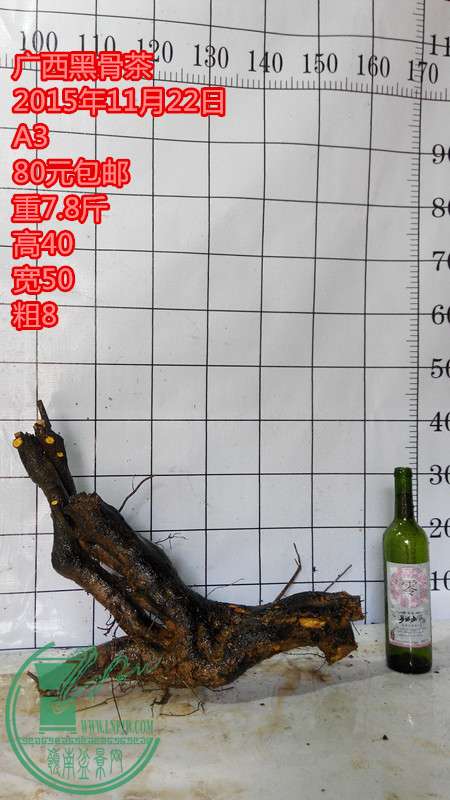 100 110 120 130 140 150 160 170
广西黑骨茶
2015年11月22日
A3
80元包邮
重7.8斤
高40
宽50
粗8
90
80
70
60
50
40
30
20
10
WWW.LNPJW.COM
岭南盆景网